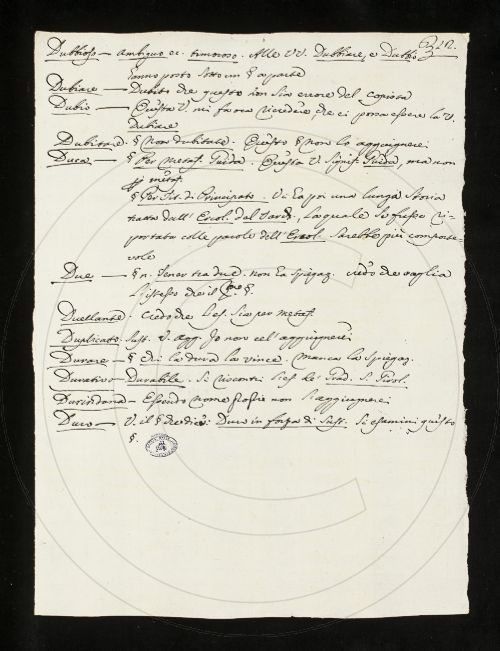 212.
Dubbioso — ambiguo ec. timoroso. Alle VV. Dubbiare, e Dubbio
vanno posto sotto un § a parte
Dubiare — Dubito che questo non sia errore del copista
Dubio — Questa V. mi fa ora ricredere, che ci possa essere la V.
Dubiare
Dubitare. § Non dubitate. Questo § non lo aggiugnerei
Duca — § Per metaf. Guida. Questa V. signif. Guida, ma non
metaf.
§ Per Tit. di Principato. Vi ha poi una lunga Storia
tratta dall' Ercol. del Varch. La quale se fusse ri-
portata colle parole dell' Ercol. sarebbe più comporte-
vole
Due — § n. Tener tra due. non ha spiegaz. credo che vaglia
l'istesso che il §.
Duellante. crederei l'es. sia per metaf.
Duplicato. Sust. V. agg. Io non ce l'aggiugnerei
Durare — § Chi la dura la vince. Manca la spiegaz.
Durativo — Durabile. Si riscontri l'es. de' Trad. S. Girol.
Durindana — Essendo nome proprio non l'aggiugnerei
Duro — V. il § che dice: Duro in forza di Sust. Si esamini questo
§.